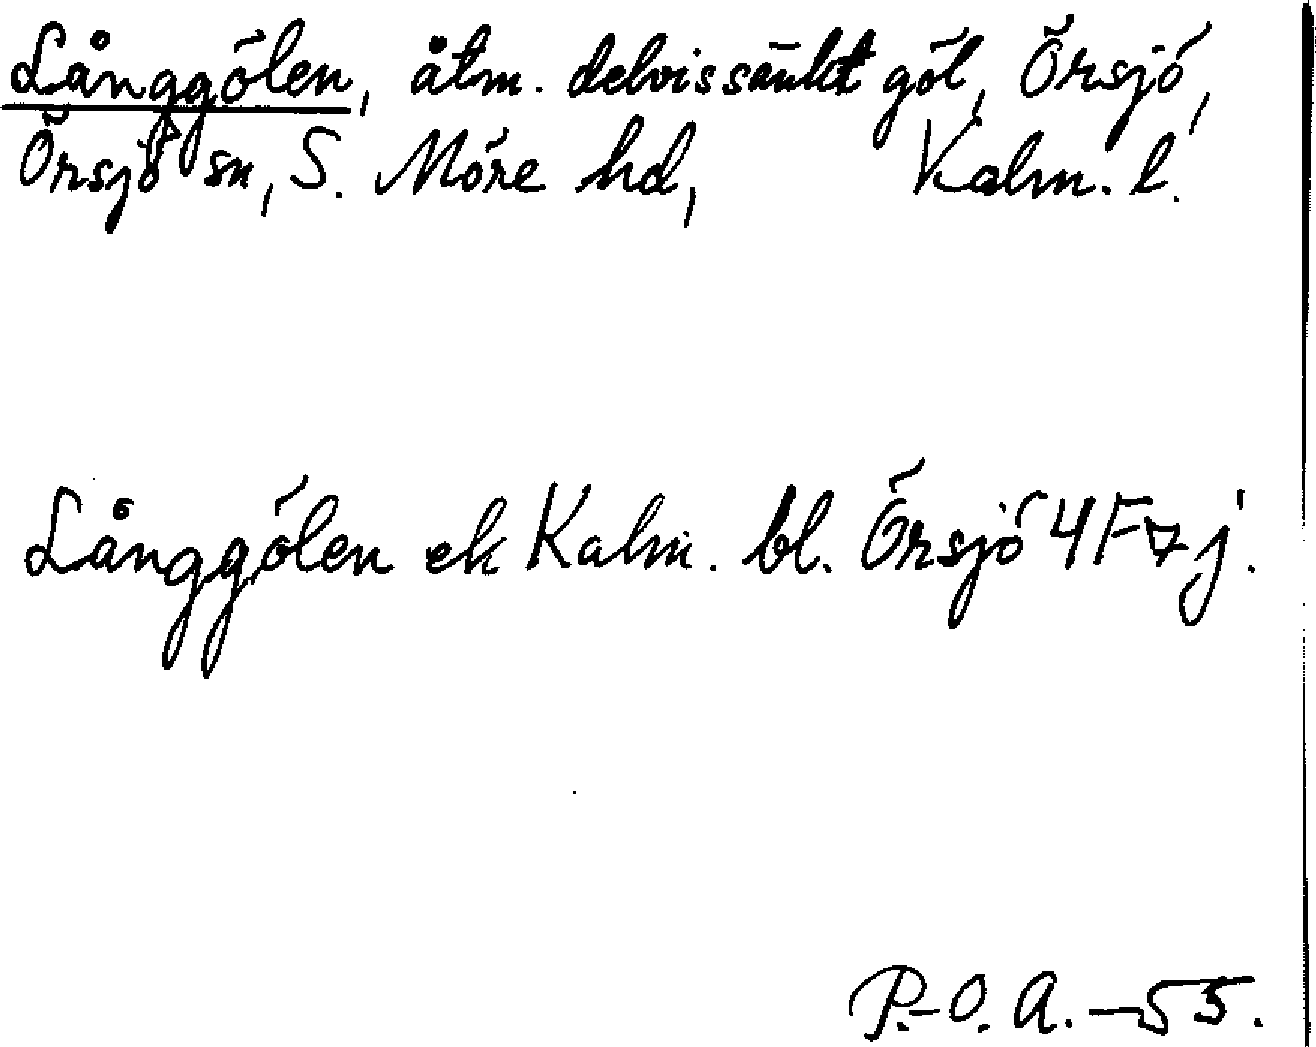 Långgölen, åtm. delvis sänkt göl, Örsjö,
Örsjö sn, S. Möre hd, Kalm. l.
Långgölen ek Kalm. bl. Örsjö 4F7j.
P.-O. A. -55.